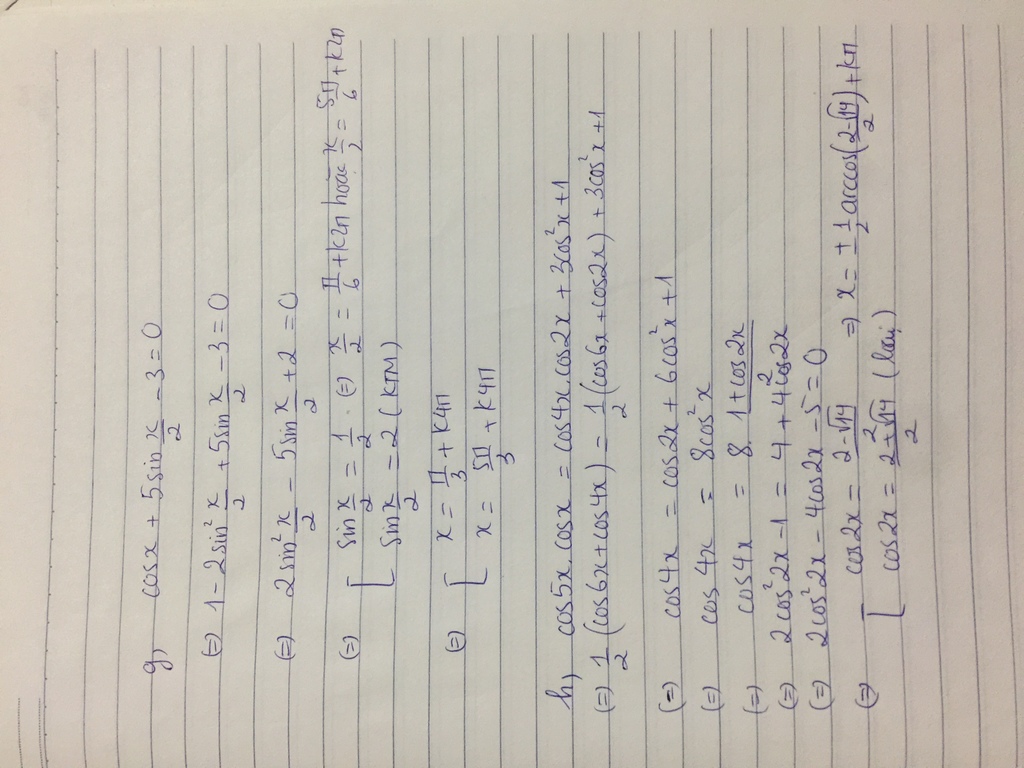 g, cosx + 5sin x/2 - 3 = 0
(=) 1 - 2sin² x/2 + 5sin x/2 - 3 = 0
(=) 2sin² x/2 - 5sin x/2 + 2 = 0
(=) [ sin x/2 = 1/2 . (=) x/2 = π/6 + k2π hoặc x/2 = 5π/6 + k2π
sin x/2 = 2 (KTM)
(=) [ x = π/3 + k4π
x = 5π/3 + k4π
h, cos5x.cosx = cos4x.cos2x + 3cos²x + 1
(=) 1/2 (cos6x + cos4x) = 1/2 (cos6x + cos2x) + 3cos²x + 1
(=) cos4x = cos2x + 6cos²x + 1
(=) cos4x = 8cos²x
(=) cos4x = 8. 1 + cos2x / 2
(=) 2cos²2x - 1 = 4 + 4cos2x
(=) 2cos²2x - 4cos2x - 5 = 0
(=) [ cos2x = 2 - √14 / 2 => x = ± 1/2 arccos(2 - √14 / 2) + kπ
cos2x = 2 + √14 / 2 (loại)